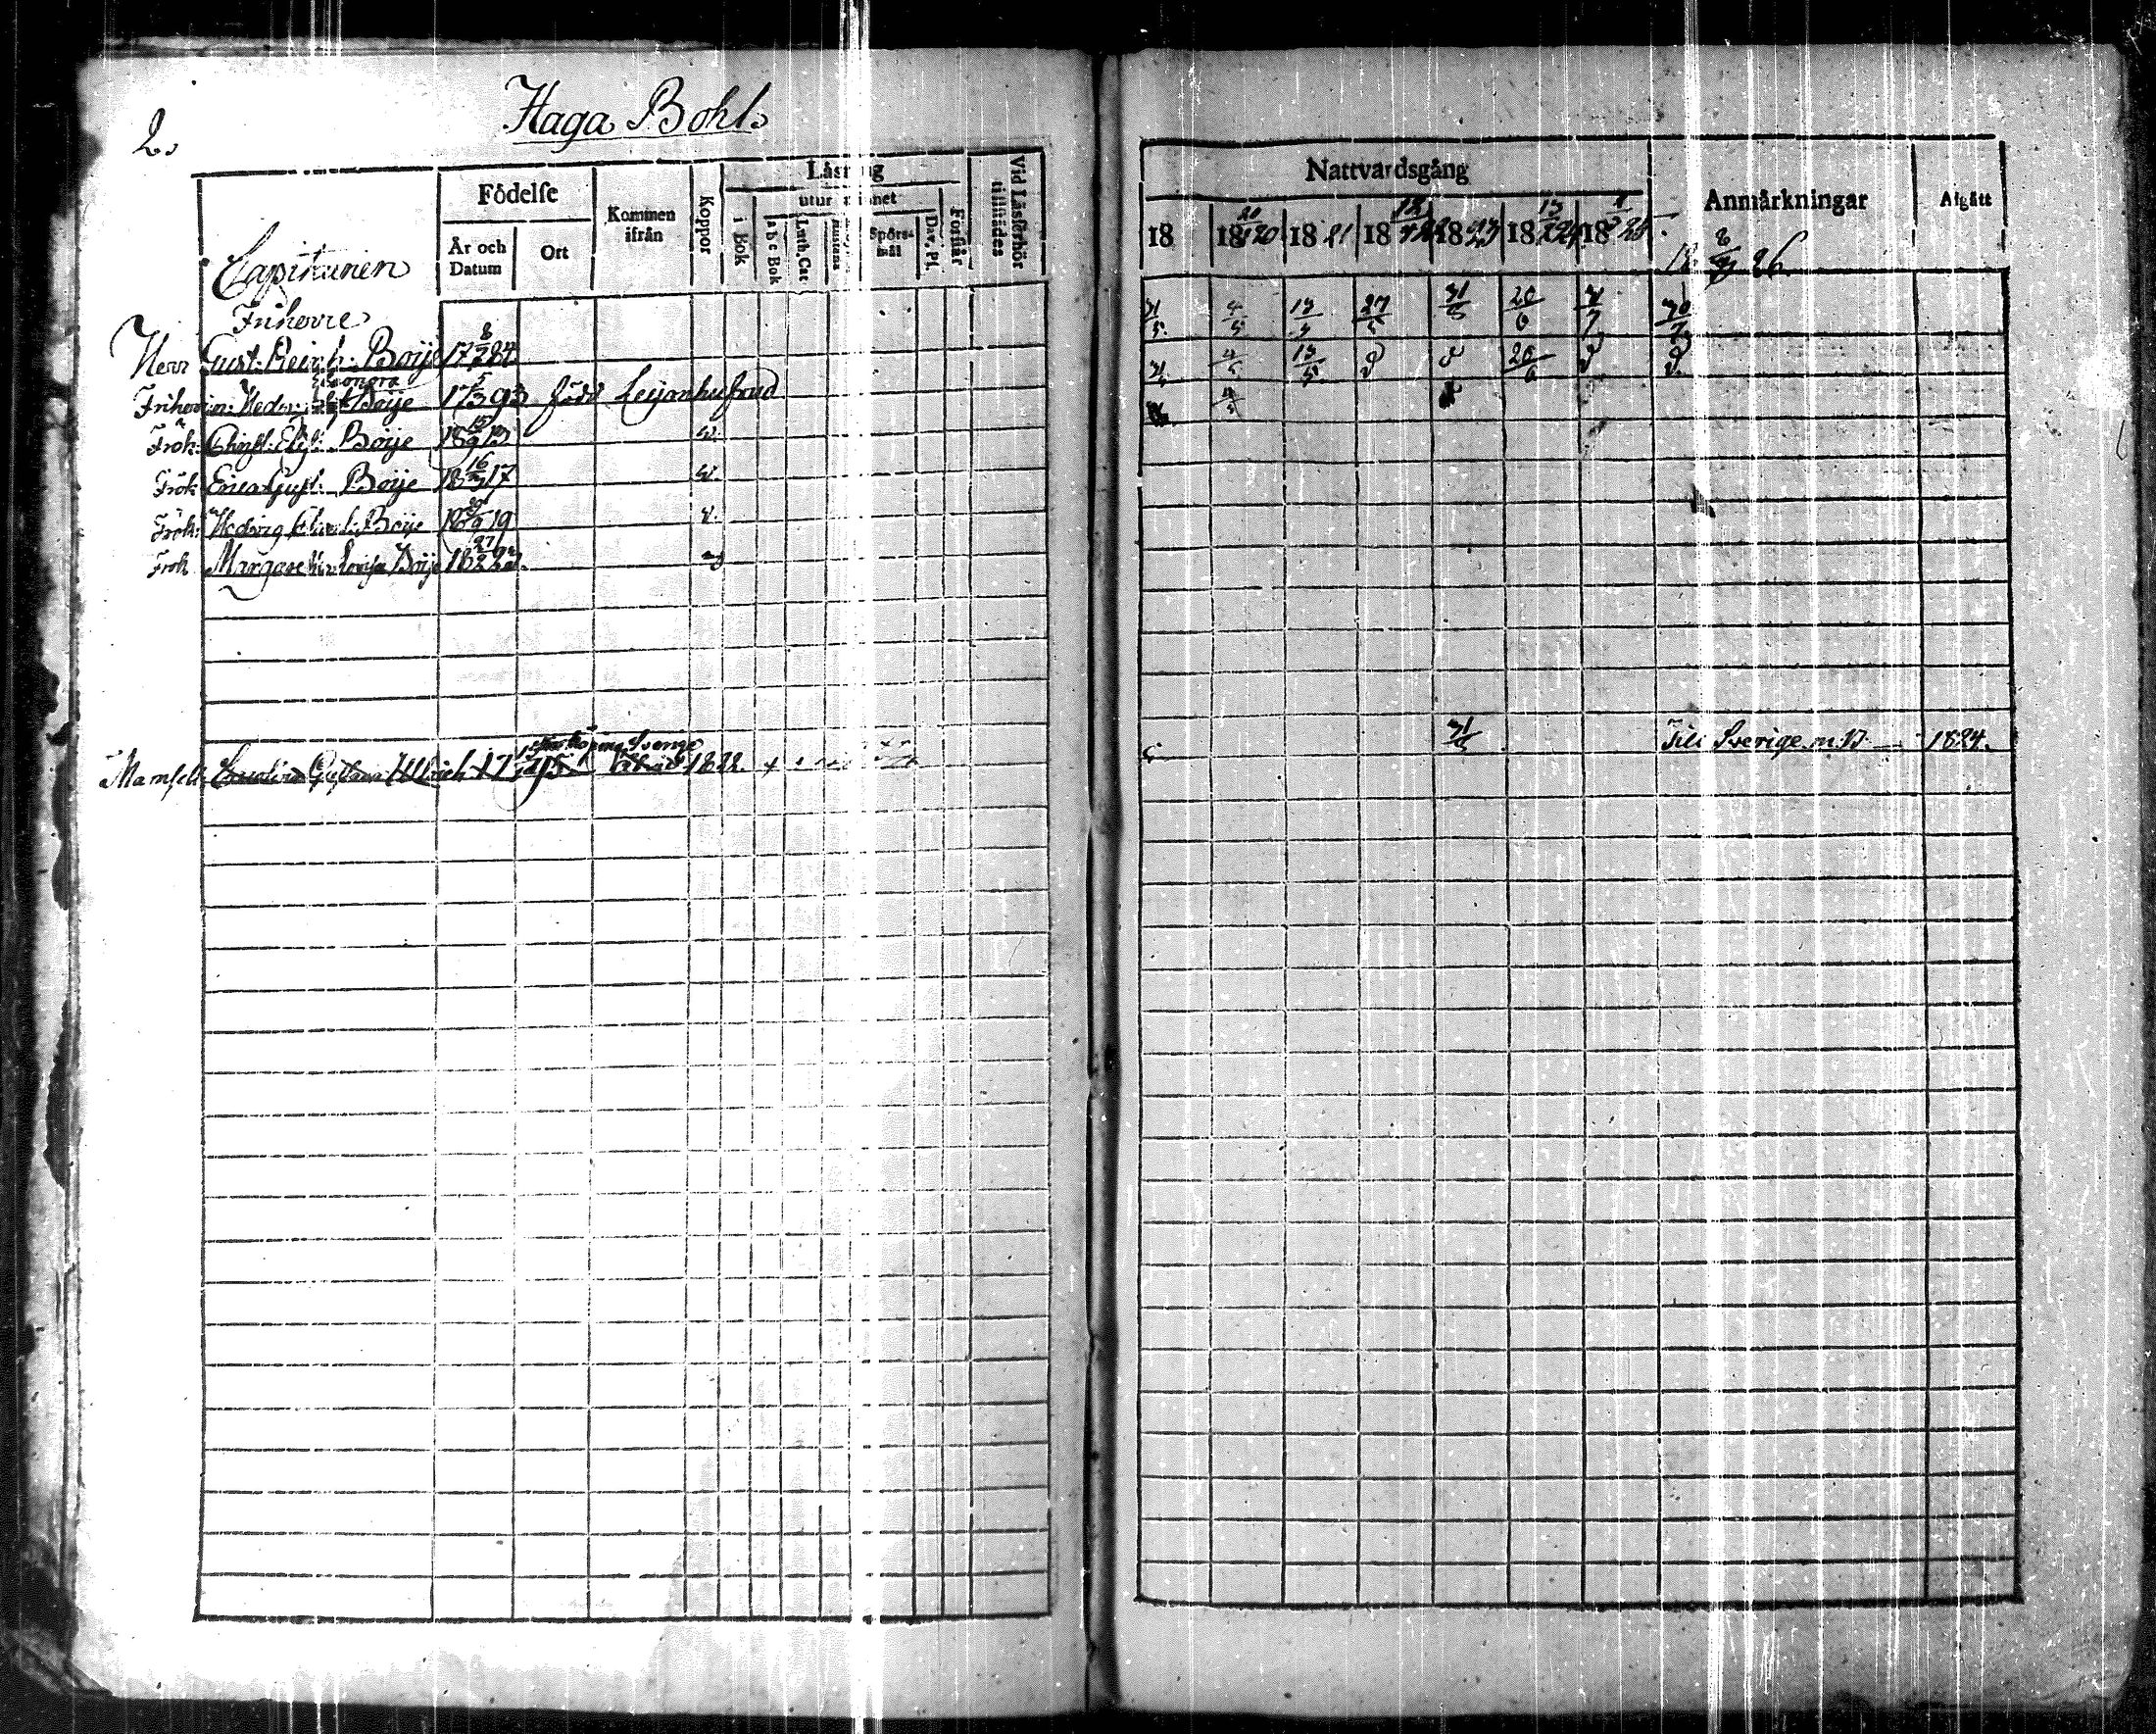 2.
Haga Bohl.
Födelse
Kommen ifrån
Koppor
Läsning
utur minnet
Vid Läsförhör tillstädes
År och Datum
Ort
i bok
a b c Bok
Luth. Cat
Spörsmål
Dav. Ps.
Förstår
Nattvardsgång
Anmärkningar
Afgått
18
18 20
18 21
18
18 23
18 24
18 25
18 26
Capitainen
Friherre
Herr Gust: Reinh: Boije 17 8/2 84
Friherrin: Hedv: Eleonora Boije 17 5/3 93 född Leijonhufvud
Frök: Christ: Elis: Boije 18 13 v.
Frök Erica Gust: Boije 18 16/3 17 v.
Frök: Hedvig Charl: Boije 18 19 v.
Frök Margaretha Lovisa Boije 18 27/2 22.
31/5 4/5 13/5 27/5 31/5 20/6 3/7 30/7
4/5 13/5 d d 20/6 d d
4/5
Mamsell Carolina Gustava Ulrich 17 95 Sverige 1822 +
31/5
Till Sverige m. B. 1824.